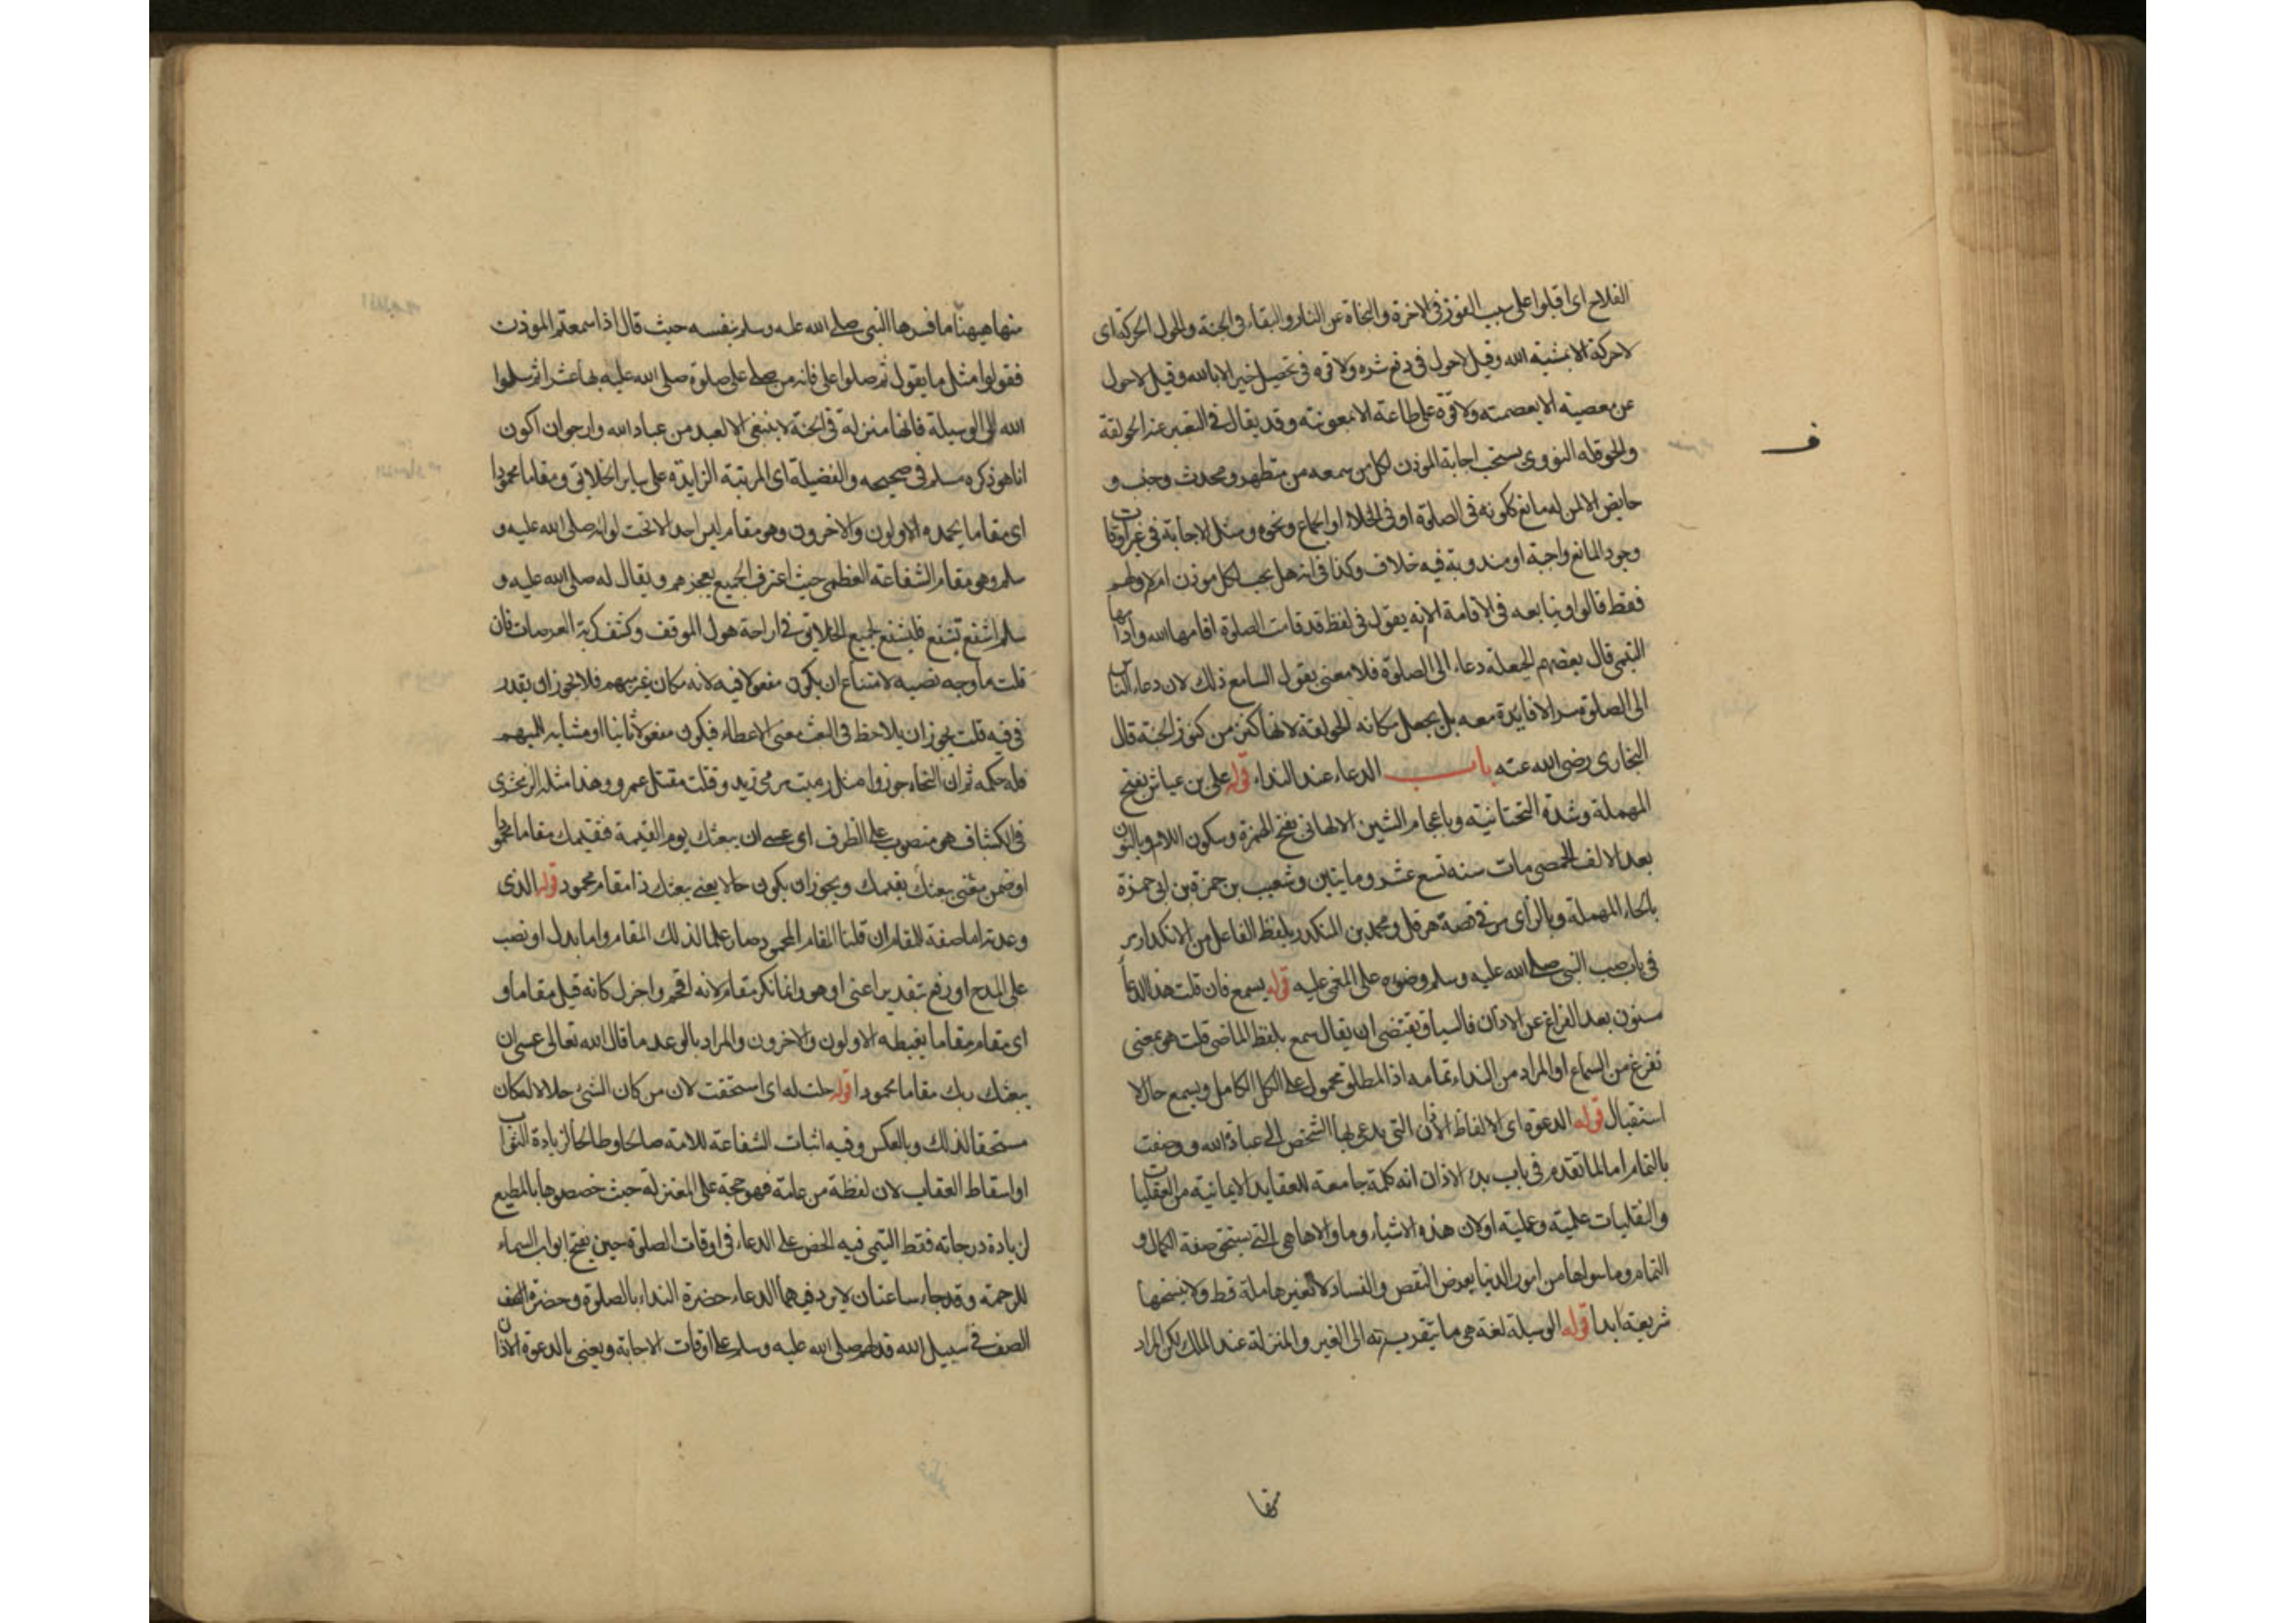 الفلاح اى اقبلوا على سبب الفوز فى الاخرة والنجاة عن النار والبقاء فى الجنة والحول الحركة اى
لا حركة الا بمشية الله وقيل لا حول فى دفع شر ولا قوة فى تحصيل خير الا بالله وقيل لا حول
عن معصية الا بعصمته ولا قوة على طاعة الا بمعونته وقد يقال فى التعبير عنه الحولقة
والحوقله النووى يستحب اجابة الموذن لكل من سمعه من متطهر ومحدث وجنب و
حايض الا لمن له مانع ككونه فى الصلوة او فى الخلاء او الجماع ونحوه ومثل الاجابة فى غير اوقات
وجود المانع واجبة او مندوبة فيه خلاف وكذا فى انه هل يجب لكل موذن ام لاولهم
فقط قالوا ويتابعه فى الاقامة الا انه يقول فى لفظ قد قامت الصلوة اقامها الله وادامها
التيمى قال بعضهم الحيعلة دعاء الى الصلوة فلا معنى بقول السامع ذلك لان دعاء الناس
الى الصلوة سرا لا فايدة معه بل يجعل مكانه الحولقة لانها كنز من كنوز الجنة قال
البخارى رضى الله عنه باب الدعاء عند النداء قوله على بن عياش بفتح
المهملة وشدة التحتانية وباعجام الشين الالهانى بفتح الهمزة وسكون اللام وبالنون
بعد الالف الحمصى مات سنه تسع عشر ومايتين وشعيب بن حمزة بن ابى حمزة
بالحاء المهملة وبالزاى مر فى قصة هرقل ومحمد بن المنكدر بلفظ الفاعل من الانكدار مر
فى باب صب النبى صلى الله عليه وسلم وضوه على المغمى عليه قوله يسمع فان قلت هذا الدعا
مسنون بعد الفراغ عن الاذان فالسياق يقتضى ان يقال سمع بلفظ الماضى قلت هو بمعنى
تفرغ من السماع او المراد من النداء تمامه اذ المطلق محمول على الكل الكامل ويسمع حال لا
استقبال قوله الدعوة اى الالفاظ الاذان التى يدعى بها الشخص الى عبادة الله ووصفت
بالتمام اما لما تقدم فى باب بدء الاذان انه كلمة جامعة للعقايد الايمانية من العقليات
والنقليات علمية وعملية او لان هذه الاشياء وما والاها هى التى يستحق صفة الكمال و
التمام وما سواها من امور الدنيا يعرض النقص والفساد لا تغيرها ملة قط ولا ينسخها
شريعة ابدا قوله الوسيلة لغة هى ما يتقرب به الى الغير والمنزلة عند الملك لكن المراد
ف
منها هيهنا ما فسرها النبى صلى الله عليه وسلم بنفسه حيث قال اذا سمعتم الموذن
فقولوا مثل ما يقول ثم صلوا على فانه من صلى على صلوة صلى الله عليه بها عشرا ثم سلوا
الله لى الوسيلة فانها منزلة فى الجنة لا ينبغى الا لعبد من عباد الله وارجو ان اكون
انا هو ذكره مسلم فى صحيحه والفضيلة اى المرتبة الزايدة على ساير الخلايق ومقاما محمودا
اى مقاما يحمده الاولون والاخرون وهو مقام ليس احد الا تحت لوائه صلى الله عليه و
سلم وهو مقام الشفاعة العظمى حيث اعترف الجميع بعجزهم ويقال له صلى الله عليه و
سلم اشفع تشفع فليشفع لجميع الخلايق فى اراحة هول الموقف وكشف كربة العرصات فان
قلت ما وجه نصبه لامتناع ان يكون مفعولا فيه لانه مكان غير مبهم فلا يجوز ان يقدر
فى فيه قلت يجوز ان يلاحظ فى البعث معنى الاعطاء فيكون مفعولا ثانيا او مشابه للمبهم
فله حكمه ثم ان النحاة جوزوا مثل رميت مرمى زيد وقتلت مقتل عمرو وهذا مثله الزمخشرى
فى الكشاف هو منصوب على الظرف اى عسى ان يبعثك يوم القيمة فيقيمك مقاما محمودا
او ضمن معنى يبعثك يقيمك ويجوز ان يكون حالا يعنى يبعثك ذا مقام محمود قوله الذى
وعدته اما صفة للمقام ان قلنا المقام المحمود صار علما لذلك المقام واما بدل او نصب
على المدح او رفع بتقدير اعنى او هو وانما نكر مقام لانه افخم واجزل كانه قيل مقاما و
اى مقام مقاما يغبطه الاولون والاخرون والمراد بالوعد ما قال الله تعالى عسى ان
يبعثك ربك مقاما محمودا قوله حلت له اى استحقت لان من كان الشئ حلالا له كان
مستحقا لذلك وبالعكس وفيه اثبات الشفاعة للامة صالحا وطالحا لزيادة الثواب
او اسقاط العقاب لان لفظة من عامة فهو حجة على المعتزلة حيث خصصوها بالمطيع
لزيادة درجاته فقط التيمى فيه الحض على الدعاء فى اوقات الصلوة حين يفتح ابواب السماء
للرحمة وقد جاء ساعتان لا يرد فيهما الدعاء حضرة النداء بالصلوة وحضرة الصف
الصف فى سبيل الله فدلهم صلى الله عليه وسلم على اوقات الاجابة ويعنى بالدعوة الاذان